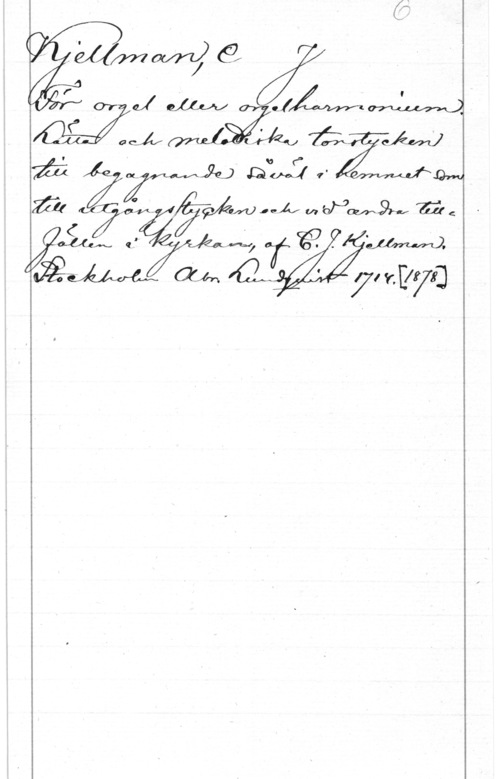 6
Kjellman, C J
För orgel eller orgelharmonium.
Lätta och melodiska tonstycken
till begagnande såväl i hemmet som
till utgångsstycken och vid andra till=
fällen i kyrkan, af C. J. Kjellman.
Stockholm Abr. Lundquist 1714. [1878]